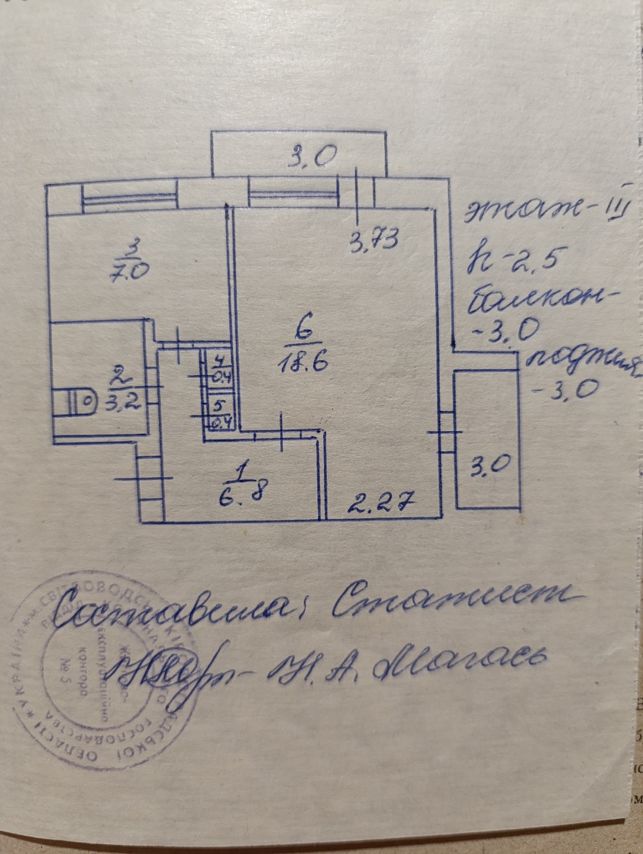 3,0
3,73
этаж-III
h-2,5
балкон-
-3,0
лоджия
-3,0
3
7.0
6
18.6
4
0.4
5
0.4
2
3,2
1
6.8
2.27
3.0
Составила: Статист
Н.А. Магась
УКРАЇНИ * м. СВІТЛОВОДСЬК
ОБЛАСТІ
ГОСПОДАРСТВА
експлуатаційна
контора
№ 5